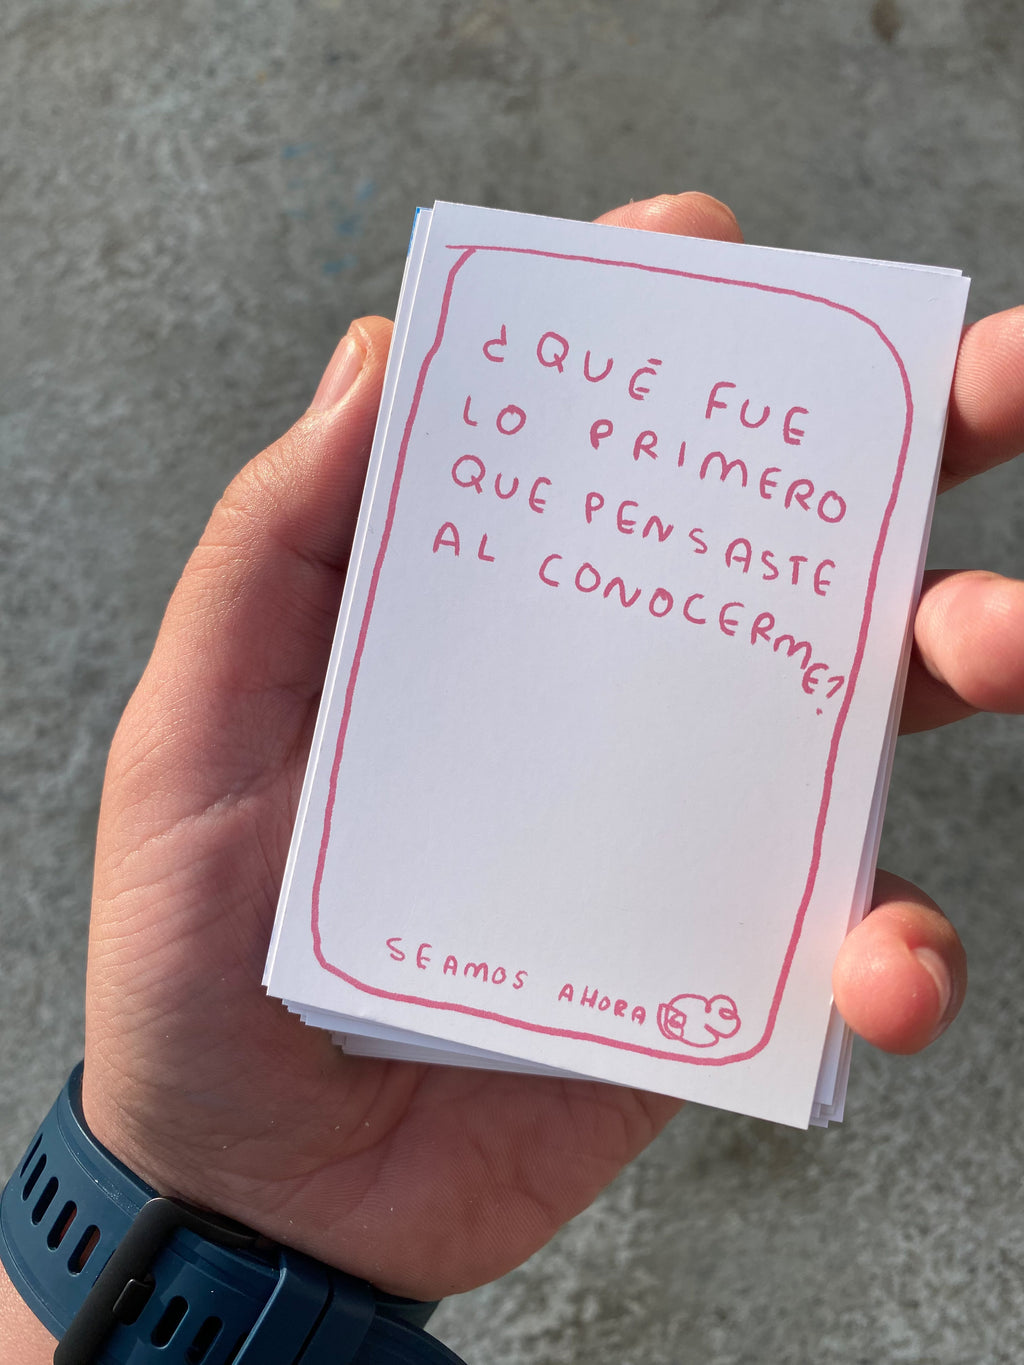 ¿QUÉ FUE
LO PRIMERO
QUE PENSASTE
AL CONOCERME?
SEAMOS AHORA